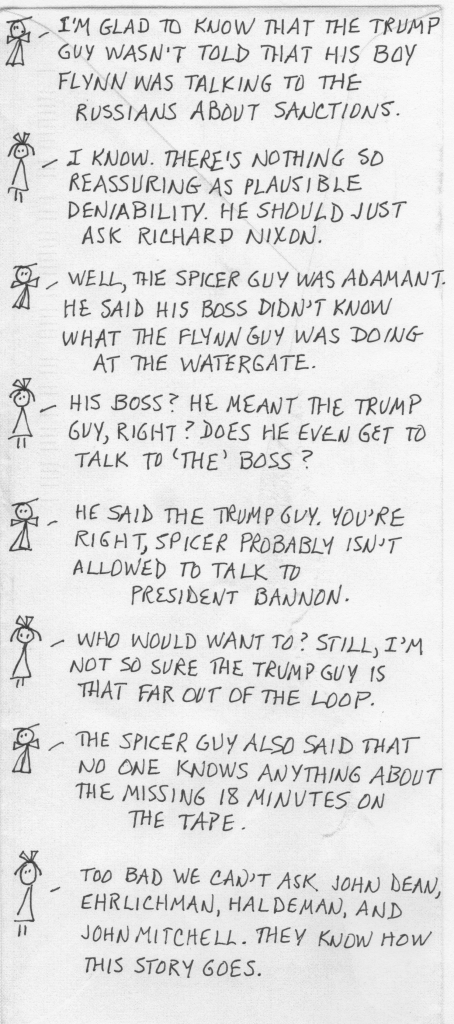 I'M GLAD TO KNOW THAT THE TRUMP
GUY WASN'T TOLD THAT HIS BOY
FLYNN WAS TALKING TO THE
RUSSIANS ABOUT SANCTIONS.
I KNOW. THERE'S NOTHING SO
REASSURING AS PLAUSIBLE
DENIABILITY. HE SHOULD JUST
ASK RICHARD NIXON.
WELL, THE SPICER GUY WAS ADAMANT.
HE SAID HIS BOSS DIDN'T KNOW
WHAT THE FLYNN GUY WAS DOING
AT THE WATERGATE.
HIS BOSS? HE MEANT THE TRUMP
GUY, RIGHT? DOES HE EVEN GET TO
TALK TO 'THE' BOSS?
HE SAID THE TRUMP GUY. YOU'RE
RIGHT, SPICER PROBABLY ISN'T
ALLOWED TO TALK TO
PRESIDENT BANNON.
WHO WOULD WANT TO? STILL, I'M
NOT SO SURE THE TRUMP GUY IS
THAT FAR OUT OF THE LOOP.
THE SPICER GUY ALSO SAID THAT
NO ONE KNOWS ANYTHING ABOUT
THE MISSING 18 MINUTES ON
THE TAPE.
TOO BAD WE CAN'T ASK JOHN DEAN,
EHRLICHMAN, HALDEMAN, AND
JOHN MITCHELL. THEY KNOW HOW
THIS STORY GOES.